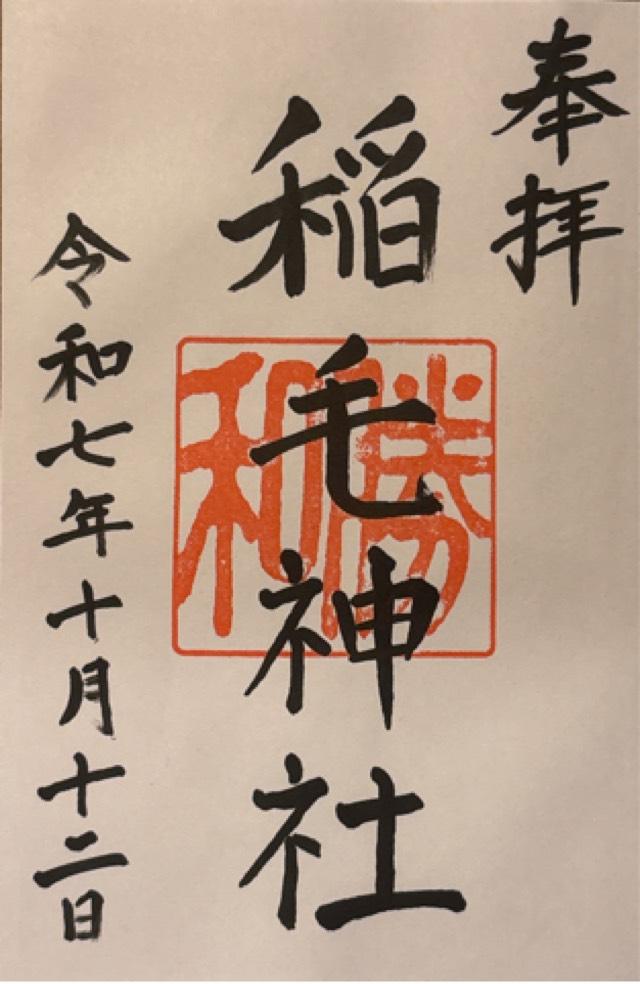 奉拝
稲毛神社
勝和
令和七年十月十二日